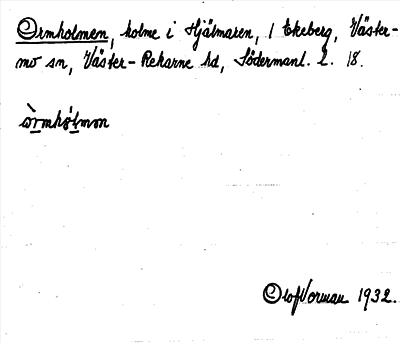 Ormholmen, holme i Hjälmaren, / Ekeberg, Väster-
mo sn, Väster-Rekarne hd, Södermanl. l. 18.
òrmhòlmon
Olof Norman 1932.